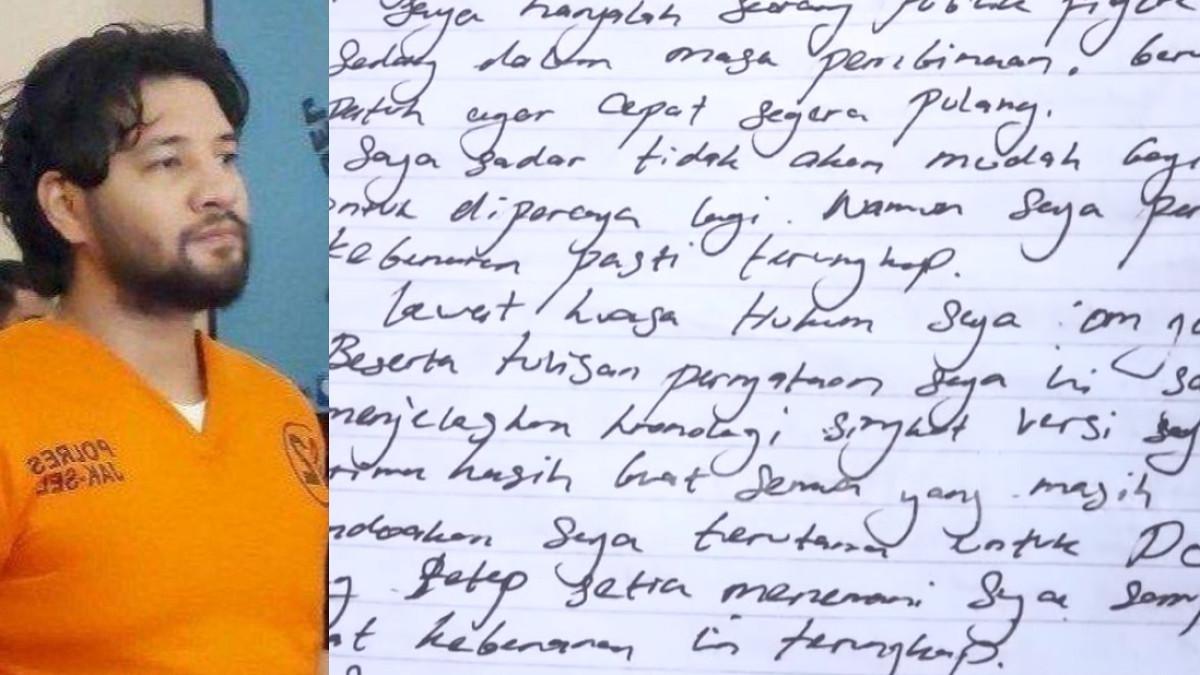 POLRES
JAK-SEL
12
Saya hanyalah seorang publik figur
Sedang dalam masa pembinaan. ber
Patuh agar cepat segera pulang.
Saya sadar tidak akan mudah bagi
untuk dipercaya lagi. Namun saya per
kebenaran pasti terungkap.
Lewat kuasa Hukum saya om
Beserta tulisan pernyataan saya ini sa
menjelaskan kronologi singkat versi say
rima kasih buat semua yang masih
ndoakan saya terutama untuk
g tetap setia menemani saya samp
at kebenaran ini terungkap.